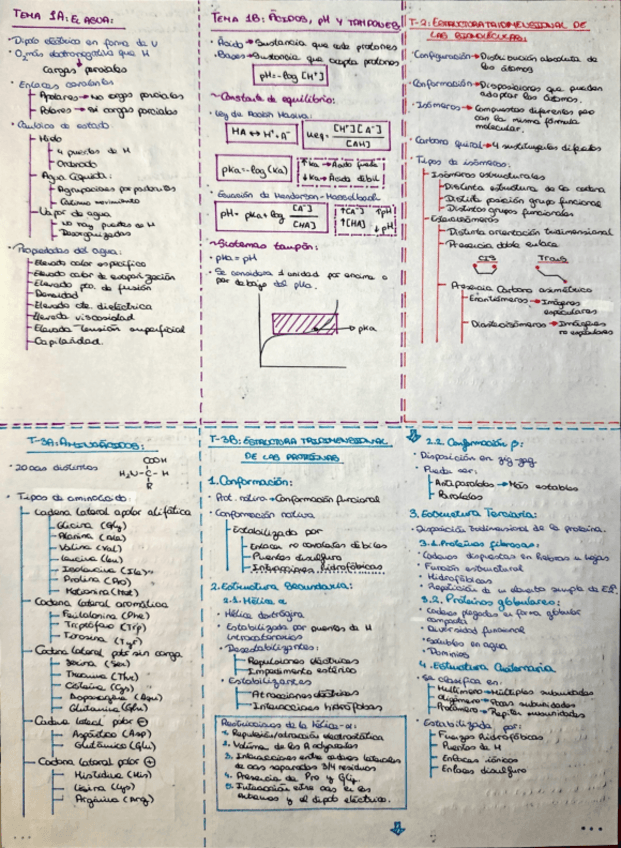 TEMA 1A: EL AGUA:
· Dipolo eléctrico en forma de V
· O₂ más electronegativo que H
Cargas parciales
· Enlaces covalentes
Apolares → no cargas parciales
Polares → sí cargas parciales
· Cambios de estado
Hielo
4 puentes de H
Ordenado
Agua líquida:
Agrupaciones
Continuo movimiento
Vapor de agua
No hay puentes de H
Desorganizadas
· Propiedades del agua:
Elevado calor específico
Elevado calor de evaporización
Elevado pto. de fusión
Densidad
Elevada cte. dieléctrica
Elevada viscosidad
Elevada Tensión superficial
Capilaridad
TEMA 1B: ÁCIDOS, pH Y TAMPONES
· Ácido → Sustancia que cede protones
· Base → Sustancia que acepta protones
pH = -log [H⁺]
~ Constante de equilibrio:
· Ley de Acción Masiva:
HA ↔ H⁺ + A⁻
Keq = [H⁺][A⁻] / [AH]
pKa = -log (Ka)
↑ Ka → Ácido fuerte
↓ Ka → Ácido débil
· Ecuación de Henderson-Hasselbalch
pH = pKa + log [A⁻] / [HA]
↑[A⁻] ↑pH
↑[HA] ↓pH
~ Sistemas tampón:
· pKa = pH
· Se considera 1 unidad por encima o
por debajo del pKa.
pKa
T-2: ESTRUCTURA TRIDIMENSIONAL DE
LAS BIOMOLÉCULAS:
· Configuración → Distribución absoluta de
los átomos
· Conformación → Disposiciones que pueden
adoptar los átomos.
· Isómeros → Compuestos diferentes pero
con la misma fórmula
molecular.
· Carbono quiral → 4 sustituyentes difentes
· Tipos de isómeros:
Isómeros estructurales
Distinta estructura de la cadena
Distinta posición grupo funcional
Distintos grupos funcionales
Estereoisómeros
Distinta orientación tridimensional
Presencia doble enlace
Cis Trans
Presencia Carbono asimétrico
Enantiómeros → Imágenes
especulares
Diastereoisómeros → Imágenes
no especulares
T-3A: AMINOÁCIDOS:
· 20 aas distintos
COOH
H₂N - C - H
R
· Tipos de aminoácido:
Cadena lateral apolar alifática
Glicina (Gly)
Alanina (Ala)
Valina (Val)
Leucina (Leu)
Isoleucina (Ile)
Prolina (Pro)
Metionina (Met)
Cadena lateral aromática
Fenilalanina (Phe)
Triptófano (Trp)
Tirosina (Tyr)
Cadena lateral polar sin carga
Serina (Ser)
Treonina (Thr)
Cisteína (Cys)
Asparagina (Asn)
Glutamina (Gln)
Cadena lateral polar ⊖
Aspártico (Asp)
Glutámico (Glu)
Cadena lateral polar ⊕
Histidina (His)
Lisina (Lys)
Arginina (Arg)
T-3B: ESTRUCTURA TRIDIMENSIONAL
DE LAS PROTEÍNAS
1. Conformación:
· Prot. nativa → Conformación funcional
· Conformación nativa
Estabilizada por
Enlaces no covalentes débiles
Puentes disulfuro
Interacciones hidrofóbicas
2. Estructura Secundaria:
2.1. Hélice α
· Hélice dextrógira
· Estabilizada por puentes de H
intracatenarios
· Desestabilizantes:
Repulsiones eléctricas
Impedimento estérico
· Estabilizantes
Atracciones eléctricas
Interacciones hidrófobas
Restricciones de la hélice-α:
1. Repulsión/atracción electrostática
2. Volumen de los R adyacentes
3. Interacciones entre cadenas laterales
de aas separados 3/4 residuos
4. Presencia de Pro y Gly.
5. Interacción entre aas en los
extremos y el dipolo eléctrico.
2.2. Conformación β:
· Disposición en zig-zag
· Puede ser:
Antiparalelas → Más estables
Paralelas
3. Estructura Terciaria:
· Disposición tridimensional de la proteína.
3.1. Proteínas fibrosas:
· Cadenas dispuestas en hebras u hojas
· Función estructural
· Hidrofóbicas
· Repetición de un elemento simple de E.2ª
3.2. Proteínas globulares:
· Cadenas plegadas en forma globular
compacta
· Diversidad funcional
· Solubles en agua
· Dominios
4. Estructura Cuaternaria
· Se clasifica en:
Multímero → Múltiples subunidades
Oligómero → Pocas subunidades
Protómero → Repiten subunidades
· Estabilizada por:
Fuerzas hidrofóbicas
Puentes de H
Enlaces iónicos
Enlaces disulfuro